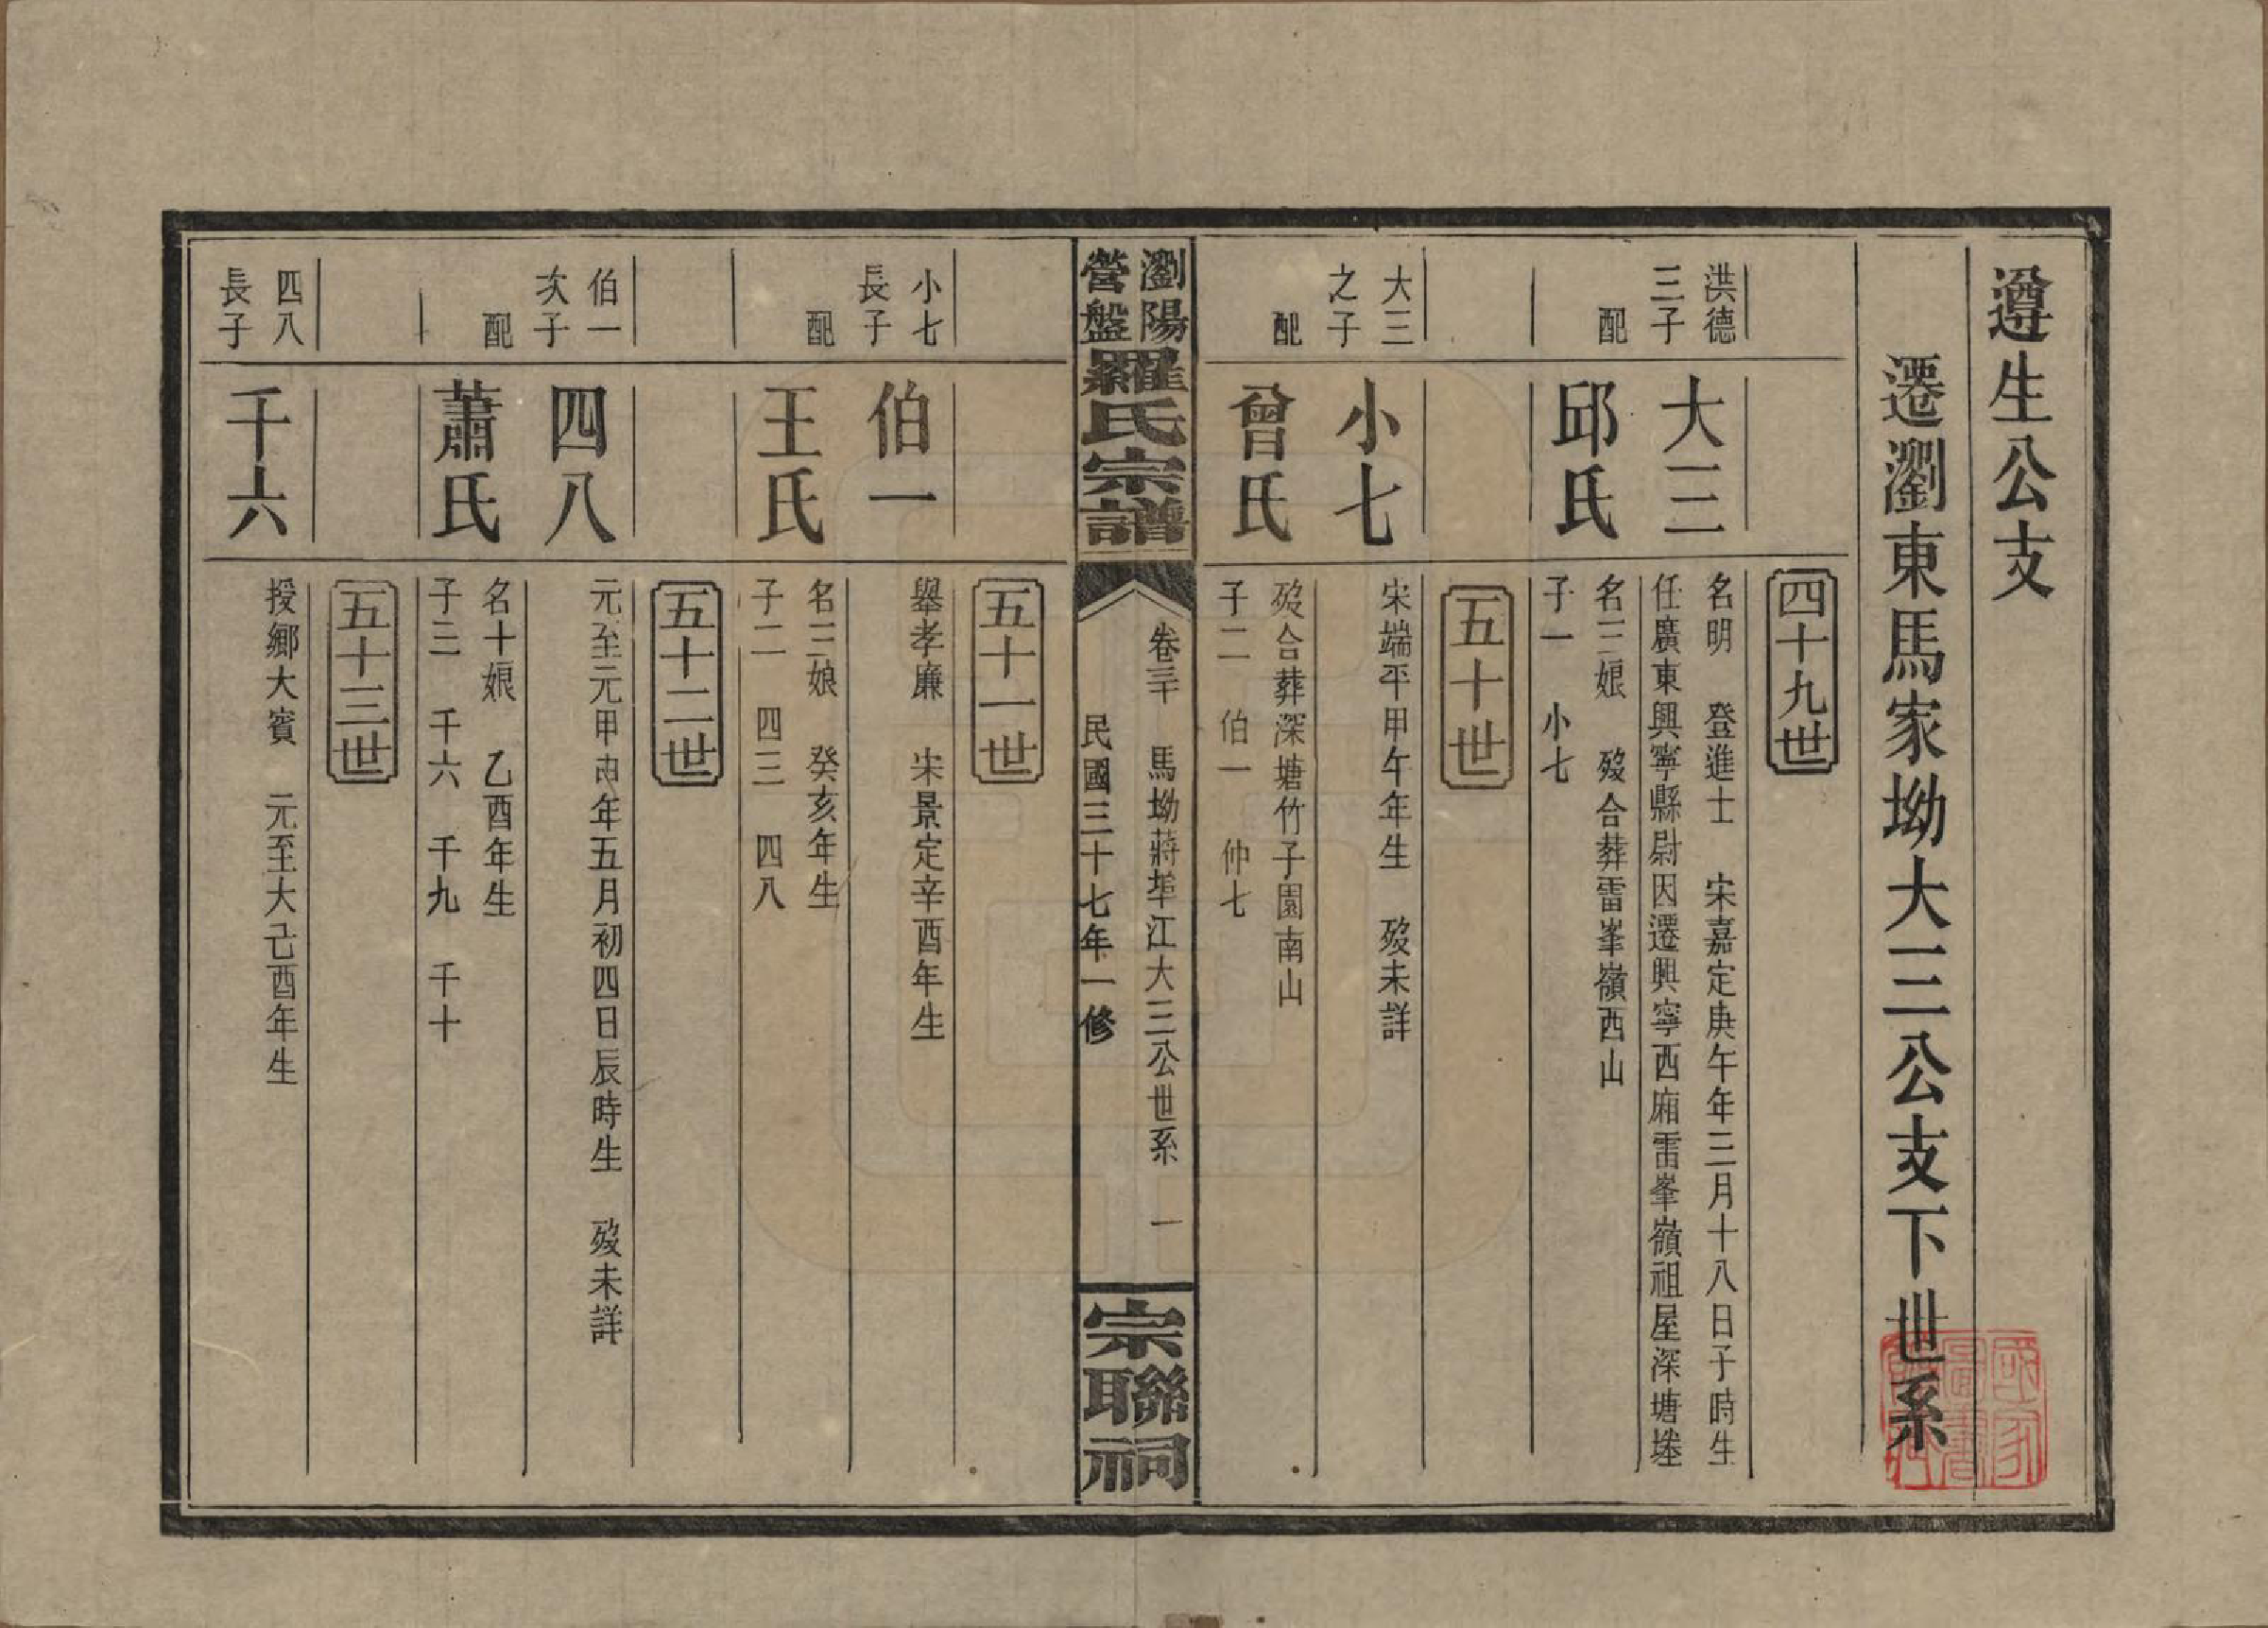 遵生公支
遷瀏東馬家坳大三公支下世系
四十九世
洪德
三子
大三
名明　登進士　宋嘉定庚午年三月十八日子時生
任廣東興寧縣尉因遷興寧西廂雷峯嶺祖屋深塘墪
配
邱氏
名三娘　歿合葬雷峯嶺西山
子一　小七
五十世
大三
之子
小七
宋端平甲午年生　歿未詳
配
曾氏
歿合葬深塘竹子園南山
子二　伯一　仲七
瀏陽
營盤
羅氏宗譜
卷三十　馬坳蔣埠江大三公世系　一
民國三十七年一修
宗聯祠
五十一世
小七
長子
伯一
舉孝廉　宋景定辛酉年生
配
王氏
名三娘　癸亥年生
子二　四三　四八
五十二世
伯一
次子
四八
元至元甲申年五月初四日辰時生　歿未詳
配
蕭氏
名十娘　乙酉年生
子三　千六　千九　千十
五十三世
四八
長子
千六
授鄉大賓　元至大己酉年生